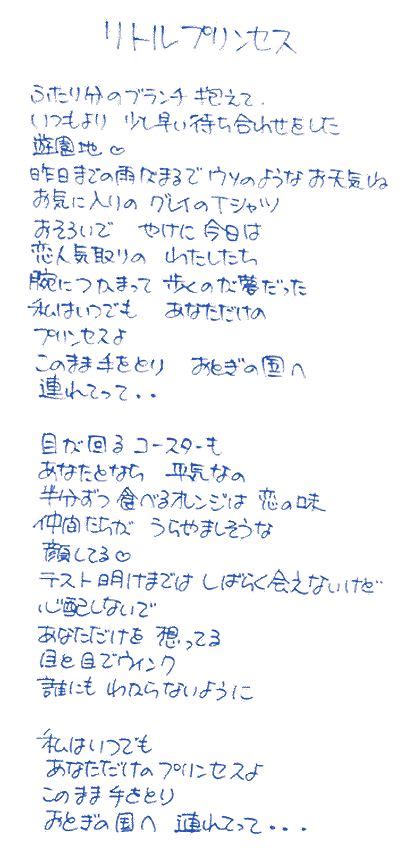 リトルプリンセス
ふたり分のブランチ 抱えて、
いつもより 少し早い待ち合わせをした
遊園地♡
昨日までの雨がまるでウソのようなお天気ね
お気に入りの グレイのTシャツ
おそろいで やけに今日は
恋人気取りの わたしたち
腕につかまって 歩くのが夢だった
私はいつでも あなただけの
プリンセスよ
このまま手をとり おとぎの国へ
連れてって・・
目が回る コースターも
あなたとなら 平気なの
半分ずつ食べるオレンジは 恋の味
仲間たちが うらやましそうな
顔してる♡
テスト明けまでは しばらく会えないけど
心配しないで
あなただけを 想ってる
目と目でウィンク
誰にも わからないように
私はいつでも
あなただけのプリンセスよ
このまま手をとり
おとぎの国へ 連れてって・・・